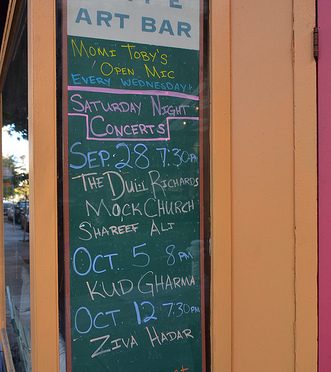 ART BAR
MOMI TOBY'S
OPEN MIC
EVERY WEDNESDAY
SATURDAY NIGHT
CONCERTS
SEP. 28 7:30PM
THE DULL RICHARDS
MOCK CHURCH
SHAREEF ALI
OCT. 5 8PM
KUD GHARMA
OCT 12 7:30PM
ZIVA HADAR